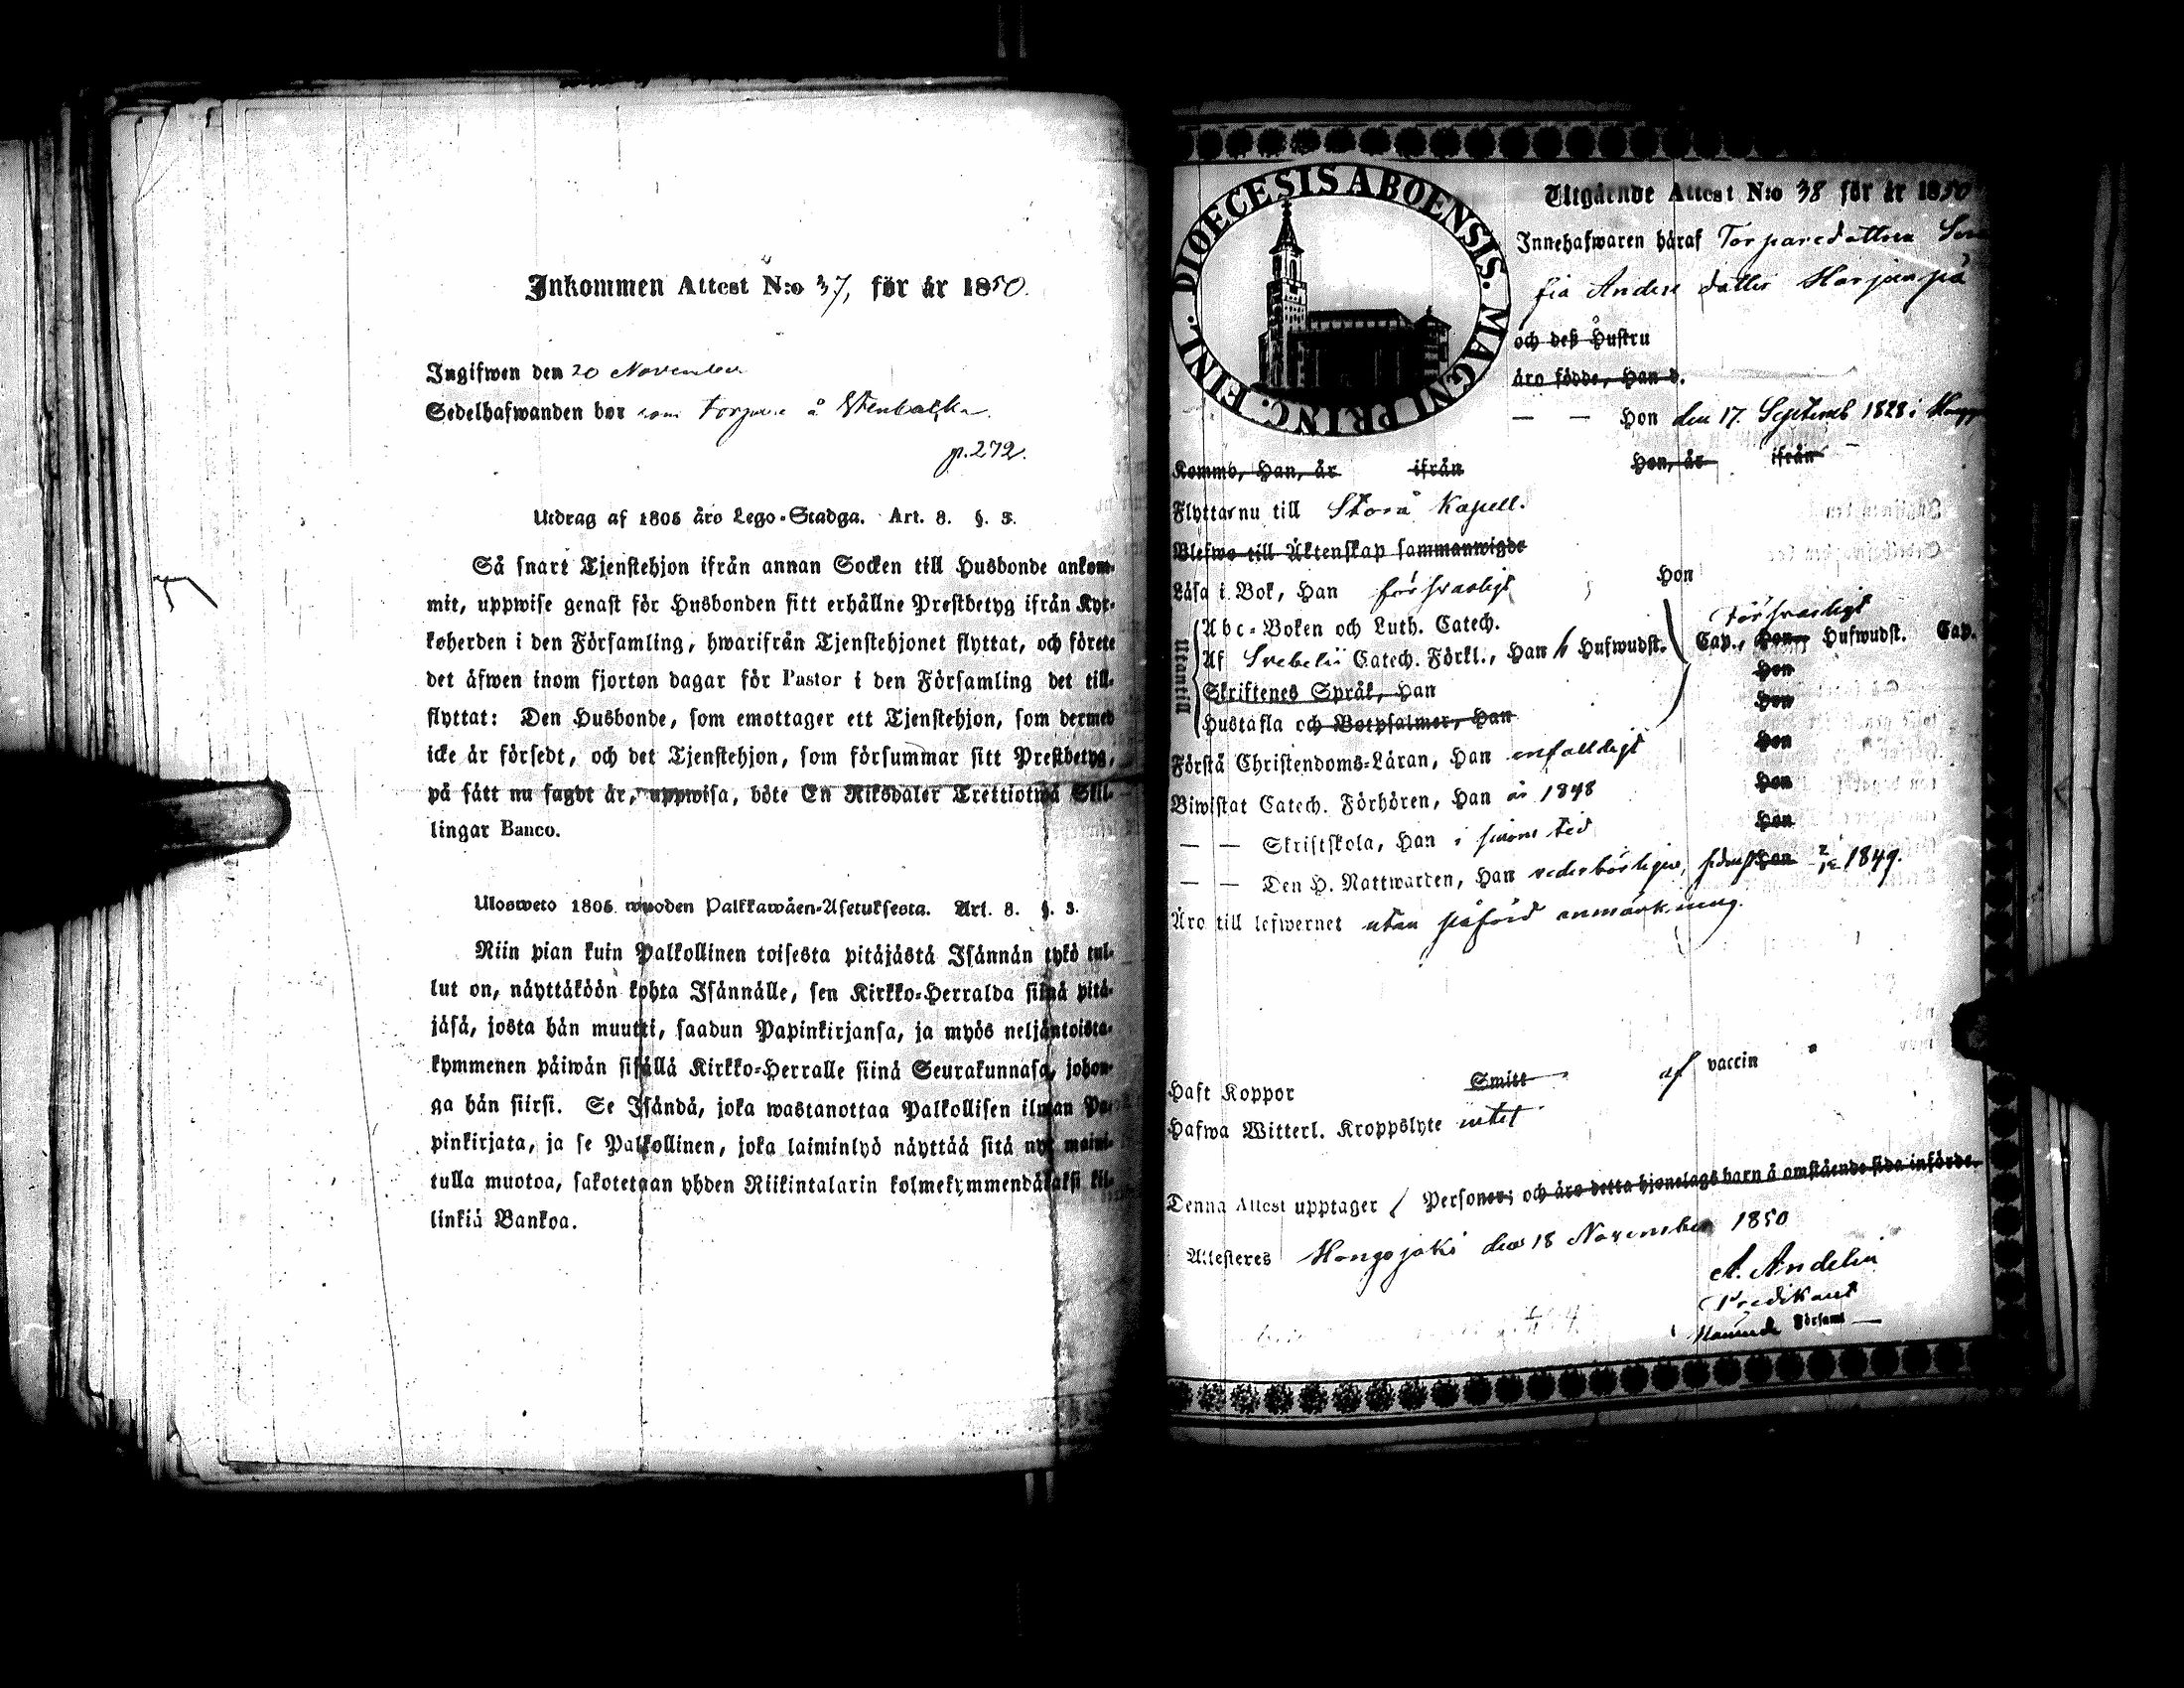 Inkommen Attest N:o 37, för år 1850.
Ingifwen den 20 November
Sedelhafwanden bor som torpare å
p. 272.
Utdrag af 1805 års Lego-Stadga. Art. 8. §. 3.
Så snart Tjenstehjon ifrån annan Socken till Husbonde ankom-
mit, uppwise genast för Husbonden sitt erhållne Prestbetyg ifrån Kyr-
koherden i den Församling, hwarifrån Tjenstehjonet flyttat, och förete
det äfwen inom fjorton dagar för Pastor i den Församling det till-
flyttat: Den Husbonde, som emottager ett Tjenstehjon, som dermed
icke är försedt, och det Tjenstehjon, som försummar sitt Prestbetyg,
på sätt nu sagdt är, uppwisa, böte En Riksdaler Trettiotwå Skil-
lingar Banco.
Ulosweto 1805 wuoden Palkkawäen-Asetuksesta. Art. 8. §. 3.
Niin pian kuin Palkollinen toisesta pitäjästä Isännän tykö tul-
lut on, näyttäköön kohta Isännälle, sen Kirkko-Herralda siinä pitä-
jäsä, josta hän muutti, saadun Papinkirjansa, ja myös neljäntoista-
kymmenen päiwän sisällä Kirkko-Herralle siinä Seurakunnasa, johon-
ga hän siirsi. Se Isändä, joka wastanottaa Palkollisen ilman Pa-
pinkirjata, ja se Palkollinen, joka laiminlyö näyttää sitä nyt maini-
tulla muotoa, sakotetaan yhden Riikintalarin kolmekymmendäkaksi kil-
linkiä Bankoa.
DIOECESIS ABOENSIS. MAGNI PRINC. FINL.
Utgående Attest N:o 38 för år 1850
Innehafwaren häraf Torparedottren
fia Andersdotter
och deß Hustru
äro födde, Han d.
— — Hon den 17. Septemb 1828 i
Kommo, Han, år ifrån Hon, år ifrån
Flytta nu till Storå Kapell.
Blefwo till Äktenskap sammanwigde
Läsa i Bok, Han försvarligt Hon
Utantill
Abc-Boken och Luth. Catech. försvarligt
Af Svebelii Catech. Förkl., Han 6 Hufwudst. Cap., Hon, Hufwudst. Cap.
Skriftenes Språk, Han Hon
Hustafla och Botpsalmer, Han Hon
Förstå Christendoms-Läran, Han enfalldigt Hon
Biwistat Catech. Förhören, Han år 1848 Hon
— — Skriftskola, Han i sinom tid Hon
— — Den H. Nattwarden, Han vederbörligen, sednast Hon 2/12 1849.
Äro till lefwernet utan påförd anmärkning.
Haft Koppor Smitt af vaccin
Hafwa Witterl. Kroppslyte intet
Denna Attest upptager 1 Personer; och äro detta hjonelags barn å omstående sida införde.
Attesteres Hongojoki den 18 November 1850
A. Andelin
Predikant
Församl